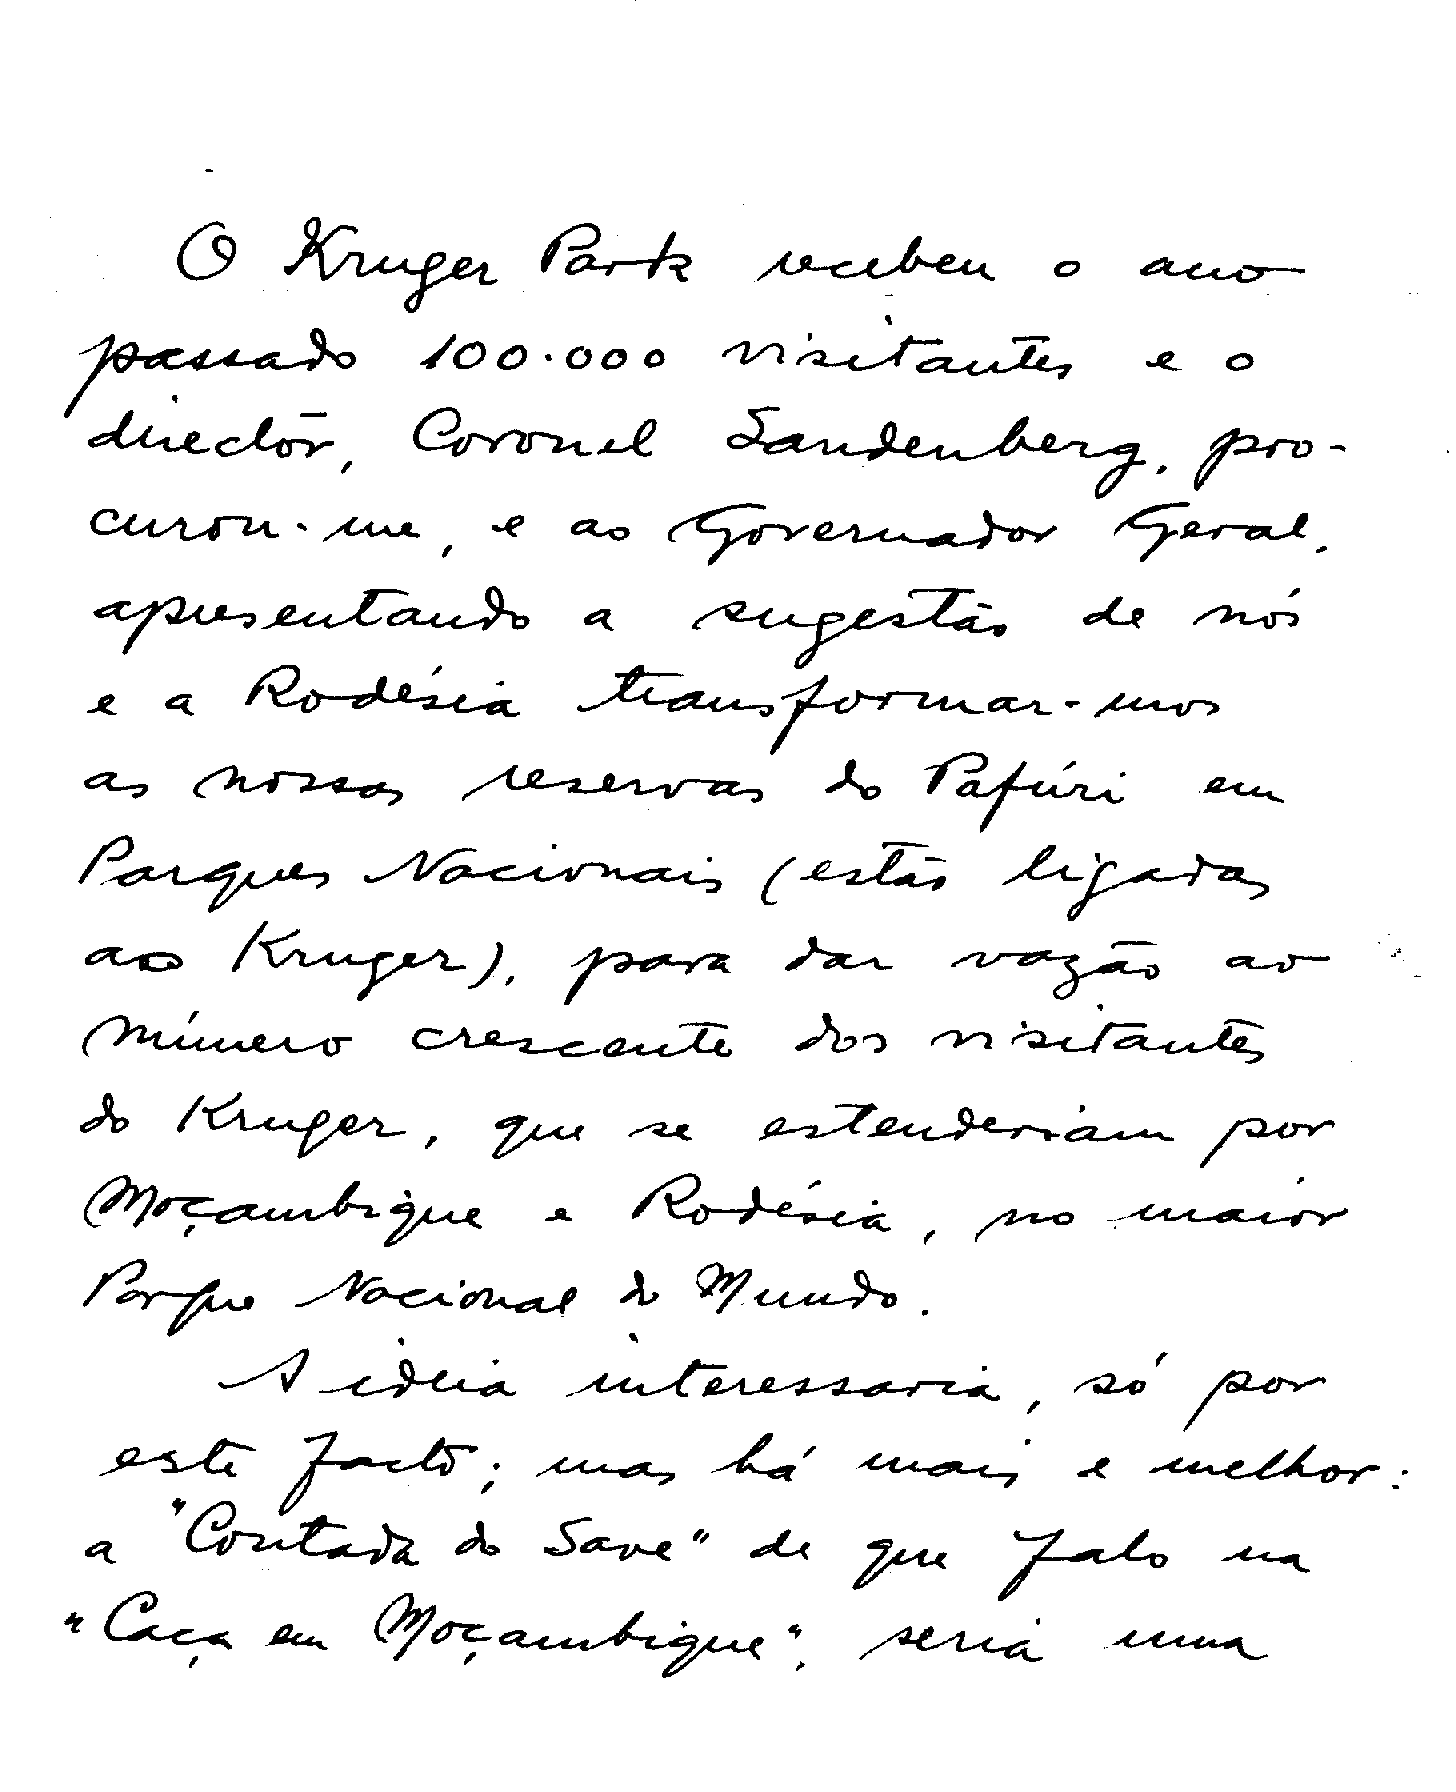 O Kruger Park recebeu o ano
passado 100.000 visitantes e o
directôr, Coronel Sandenberg, pro-
curou-me, e ao Governador Geral,
apresentando a sugestão de nós
e a Rodésia transformar-mos
as nossas reservas do Pafúri em
Parques Nacionais (estão ligadas
ao Kruger), para dar vazão ao
número crescente dos visitantes
do Kruger, que se estenderiam por
Moçambique e Rodésia, no maior
Parque Nacional do Mundo.
A ideia interessaria, só por
este facto; mas há mais e melhor:
a "Coutada do Save" de que falo na
"Caça em Moçambique", seria uma